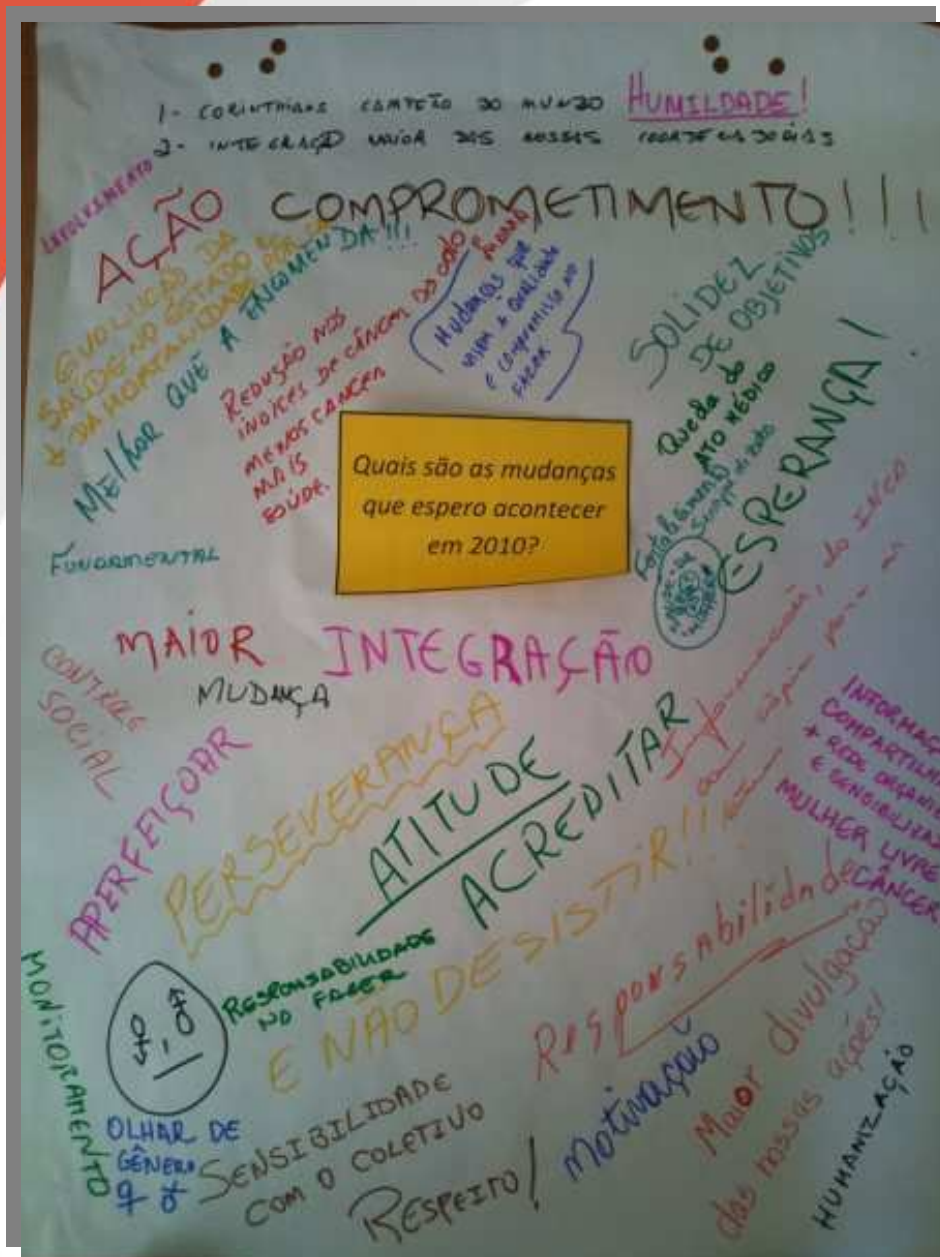 1- CORINTHIANS CAMPEÃO DO MUNDO HUMILDADE!
2- INTEGRAÇÃO MAIOR DAS NOSSAS COORDENADORIAS
AÇÃO COMPROMETIMENTO!!!
EVOLUÇÃO DA
SAÚDE NO ESTADO
DA MORTALIDADE
MElhor QUE A ENCOMENDA!!!
REDUÇÃO NOS
ÍNDICES DE CÂNCER DO COLO
MENOS CANCER
MAIS
SAÚDE.
Mudanças que
visem a qualidade
e compromisso no
fazer
SOLIDEZ
DE OBJETIVOS
Queda do
ATO MÉDICO
ESPERANÇA!
Quais são as mudanças
que espero acontecer
em 2010?
FUNDAMENTAL
MAIOR INTEGRAÇÃO
MUDANÇA
CONTROLE
SOCIAL
APERFEIÇOAR
PERSEVERANÇA
ATITUDE
ACREDITAR
E NÃO DESISTIR!!!
MULHER LIVRE
CÂNCER
RESPONSABILIDADE
NO FAZER
Responsabilidade
MONITORAMENTO
OLHAR DE
GÊNERO
♀ ♂
SENSIBILIDADE
COM O COLETIVO
RESPEITO!
Motivação
Maior divulgação
das nossas ações!
HUMANIZAÇÃO